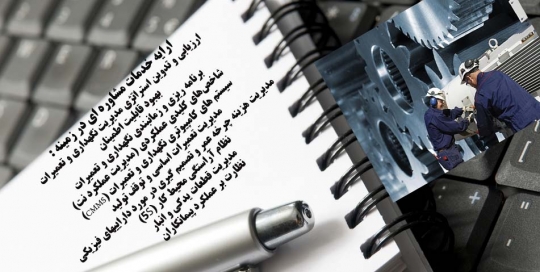 ارایه خدمات مشاوره ای در زمینه :
ارزیابی و تدوین استراتژی مدیریت نگهداری و تعمیرات
بهبود قابلیت اطمینان
برنامه ریزی و زمانبندی نگهداری و تعمیرات
شاخص های کلیدی عملکردی (مدیریت عملکرد نت)
سیستم های کامپیوتری نگهداری و تعمیرات (CMMS)
مدیریت تعمیرات اساسی و توقف تولید
مدیریت هزینه چرخه عمر و تصمیم گیری در مورد داراییهای فیزیکی
نظام آراستگی محیط کار (5S)
مدیریت قطعات یدکی و انبار
نظارت بر عملکرد پیمانکاران